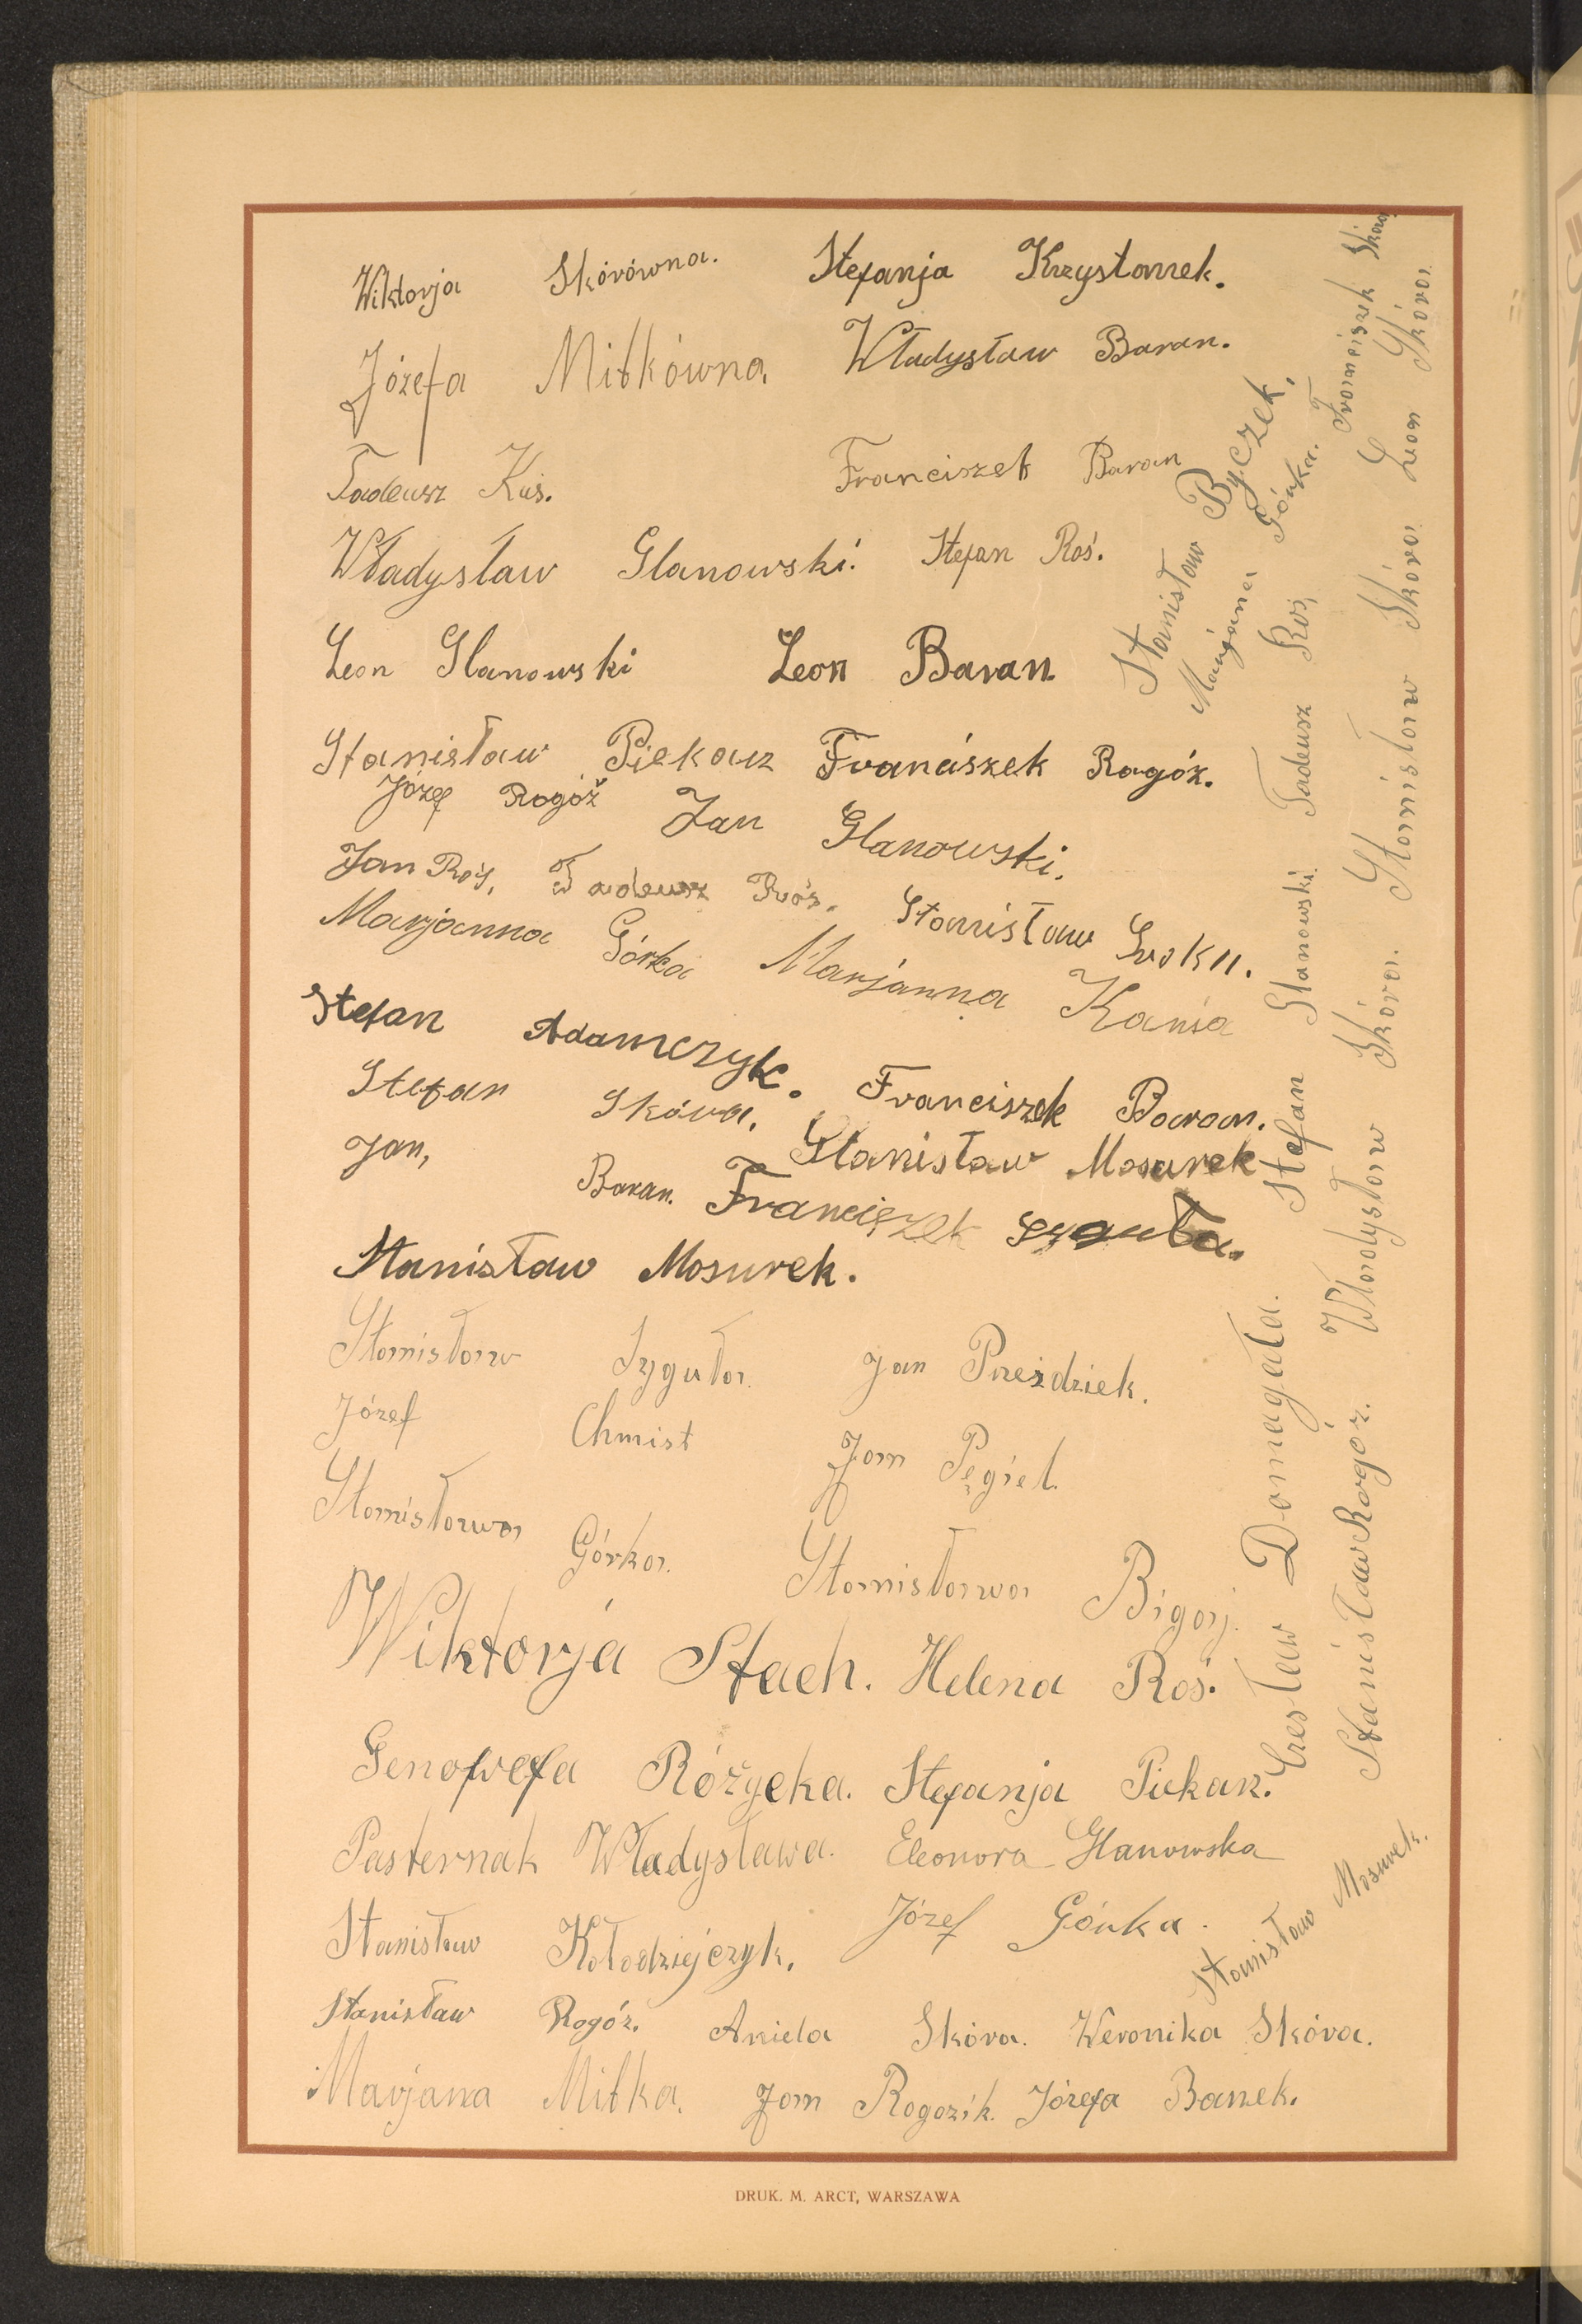 Wiktorja Skórówna. Stefanja Krzystanek.
Józefa Mitkówna, Władysław Baran.
Tadeusz Kuś. Franciszek Baran
Władysław Glanowski. Stefan Roś.
Leon Glanowski Leon Baran.
Stanisław Piekarz Franciszek Rogóż.
Józef Rogóż Jan Glanowski.
Jan Roś, Tadeusz Roś. Stanisław
Marjanna Górka Marjanna Kania
Stefan Adamczyk. Franciszek Baran.
Stefan Skóra. Stanisław Mosurek
Jan, Baran. Franciszek Szguła.
Stanisław Mosurek.
Stanisław Szguła. Jan Prieżdziek.
Józef Chmist Jan Pęgiel.
Stanisława Górka. Stanisława Bigaj.
Wiktorja Stach. Helena Roś.
Genowefa Różycka. Stefanja Piekarz.
Pasternak Władysława. Eleonora Glanowska
Stanisław Kołodziejczyk. Józef Górka.
Stanisław Rogóż. Aniela Skóra. Weronika Skóra.
Marjana Mitka. Jan Rogozik. Józefa Banek.
Stanisław Byczek.
Marjana Górka.
Czesław Domagała. Stefan Glanowski. Tadeusz Roś, Franciszek Skóra
Stanisław Rogóż. Władysław Skóra. Stanisław Skóra. Leon Skóra.
Stanisław Mosurek.
DRUK. M. ARCT, WARSZAWA